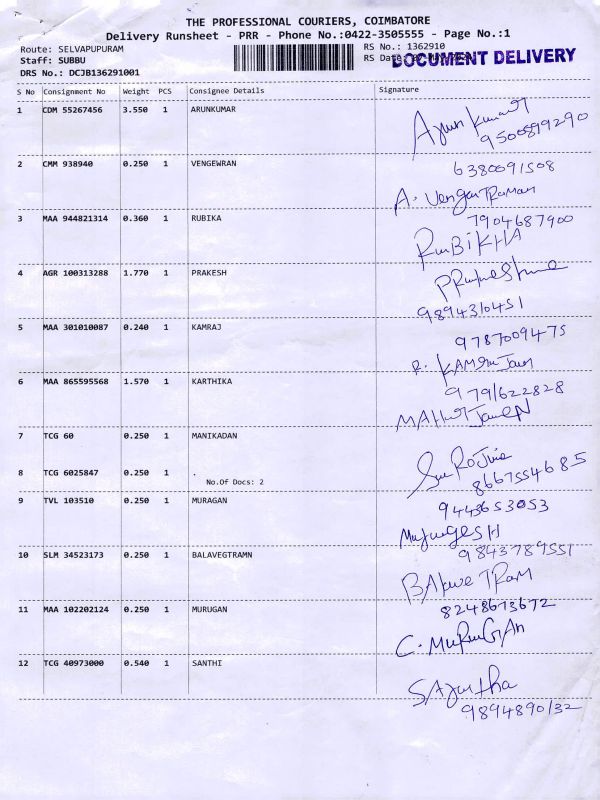 THE PROFESSIONAL COURIERS, COIMBATORE
Delivery Runsheet - PRR - Phone No.:0422-3505555 - Page No.:1
Route: SELVAPUPURAM
Staff: SUBBU
DRS No.: DCJB136291001
RS No.: 1362910
RS Date:
DOCUMENT DELIVERY
S No Consignment No Weight PCS Consignee Details Signature
1 CDM 55267456 3.550 1 ARUNKUMAR
Arun Kumar
9500899290
2 CMM 938940 0.250 1 VENGEWRAN
6380091508
A. Vengatraman
3 MAA 944821314 0.360 1 RUBIKA
7904687900
RUBIKHA
4 AGR 100313288 1.770 1 PRAKESH
9894310451
5 MAA 301010087 0.240 1 KAMRAJ
9787009475
R.
6 MAA 865595568 1.570 1 KARTHIKA
9791622828
7 TCG 60 0.250 1 MANIKADAN
8 TCG 6025847 0.250 1 .
No.Of Docs: 2
8667554685
9 TVL 103510 0.250 1 MURAGAN
9443653053
10 SLM 34523173 0.250 1 BALAVEGTRAMN
9843789551
11 MAA 102202124 0.250 1 MURUGAN
8248673672
C. MURUGAN
12 TCG 40973000 0.540 1 SANTHI
9894890132